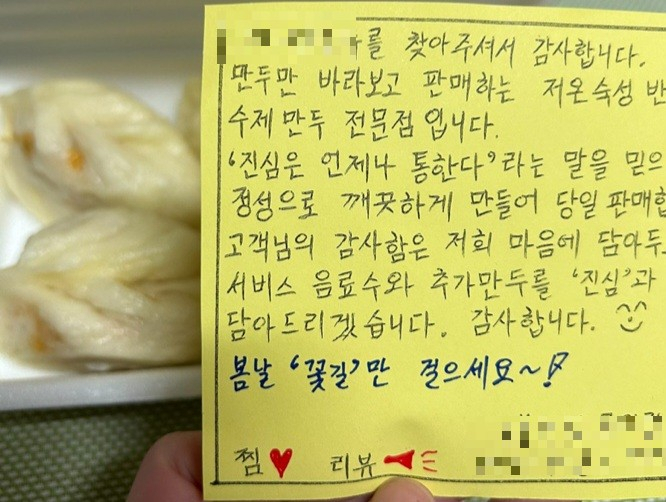 를 찾아주셔서 감사합니다.
만두만 바라보고 판매하는 저온숙성 반
수제만두 전문점입니다.
'진심은 언제나 통한다'라는 말을 믿으
정성으로 깨끗하게 만들어 당일 판매합
고객님의 감사함은 저희 마음에 담아두
서비스 음료수와 추가만두를 '진심'과
담아드리겠습니다. 감사합니다.
봄날 '꽃길'만 걸으세요~!
찜 리뷰